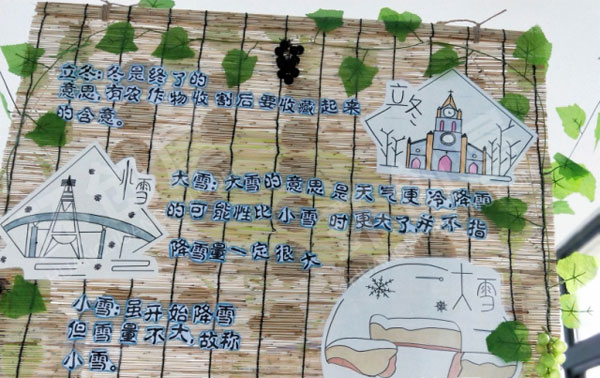 立冬:冬是终了的
意思,有农作物收割后要收藏起来
的含意。
立冬
小雪
大雪:大雪的意思是天气更冷,降雪
的可能性比小雪时更大了并不指
降雪量一定很大
大雪
小雪:虽开始降雪
但雪量不大,故称
小雪。